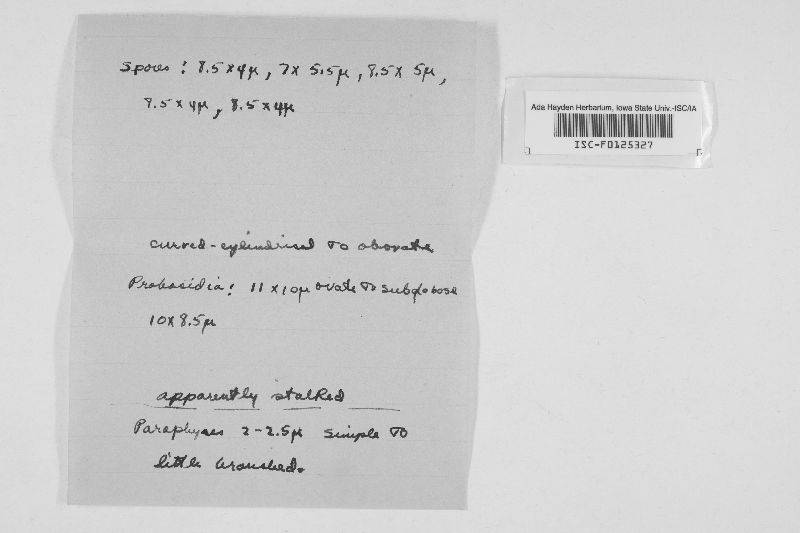 Spores: 8.5 x 4µ, 7 x 5.5µ, 8.5 x 5µ,
8.5 x 4µ, 8.5 x 4µ
Ada Hayden Herbarium, Iowa State Univ.-ISC/IA
ISC-F0125327
curved-cylindrical to obovate
Probasidia: 11 x 10µ ovate to subglobose
10 x 8.5µ
apparently stalked
Paraphyses 2-2.5µ simple to
little branched.